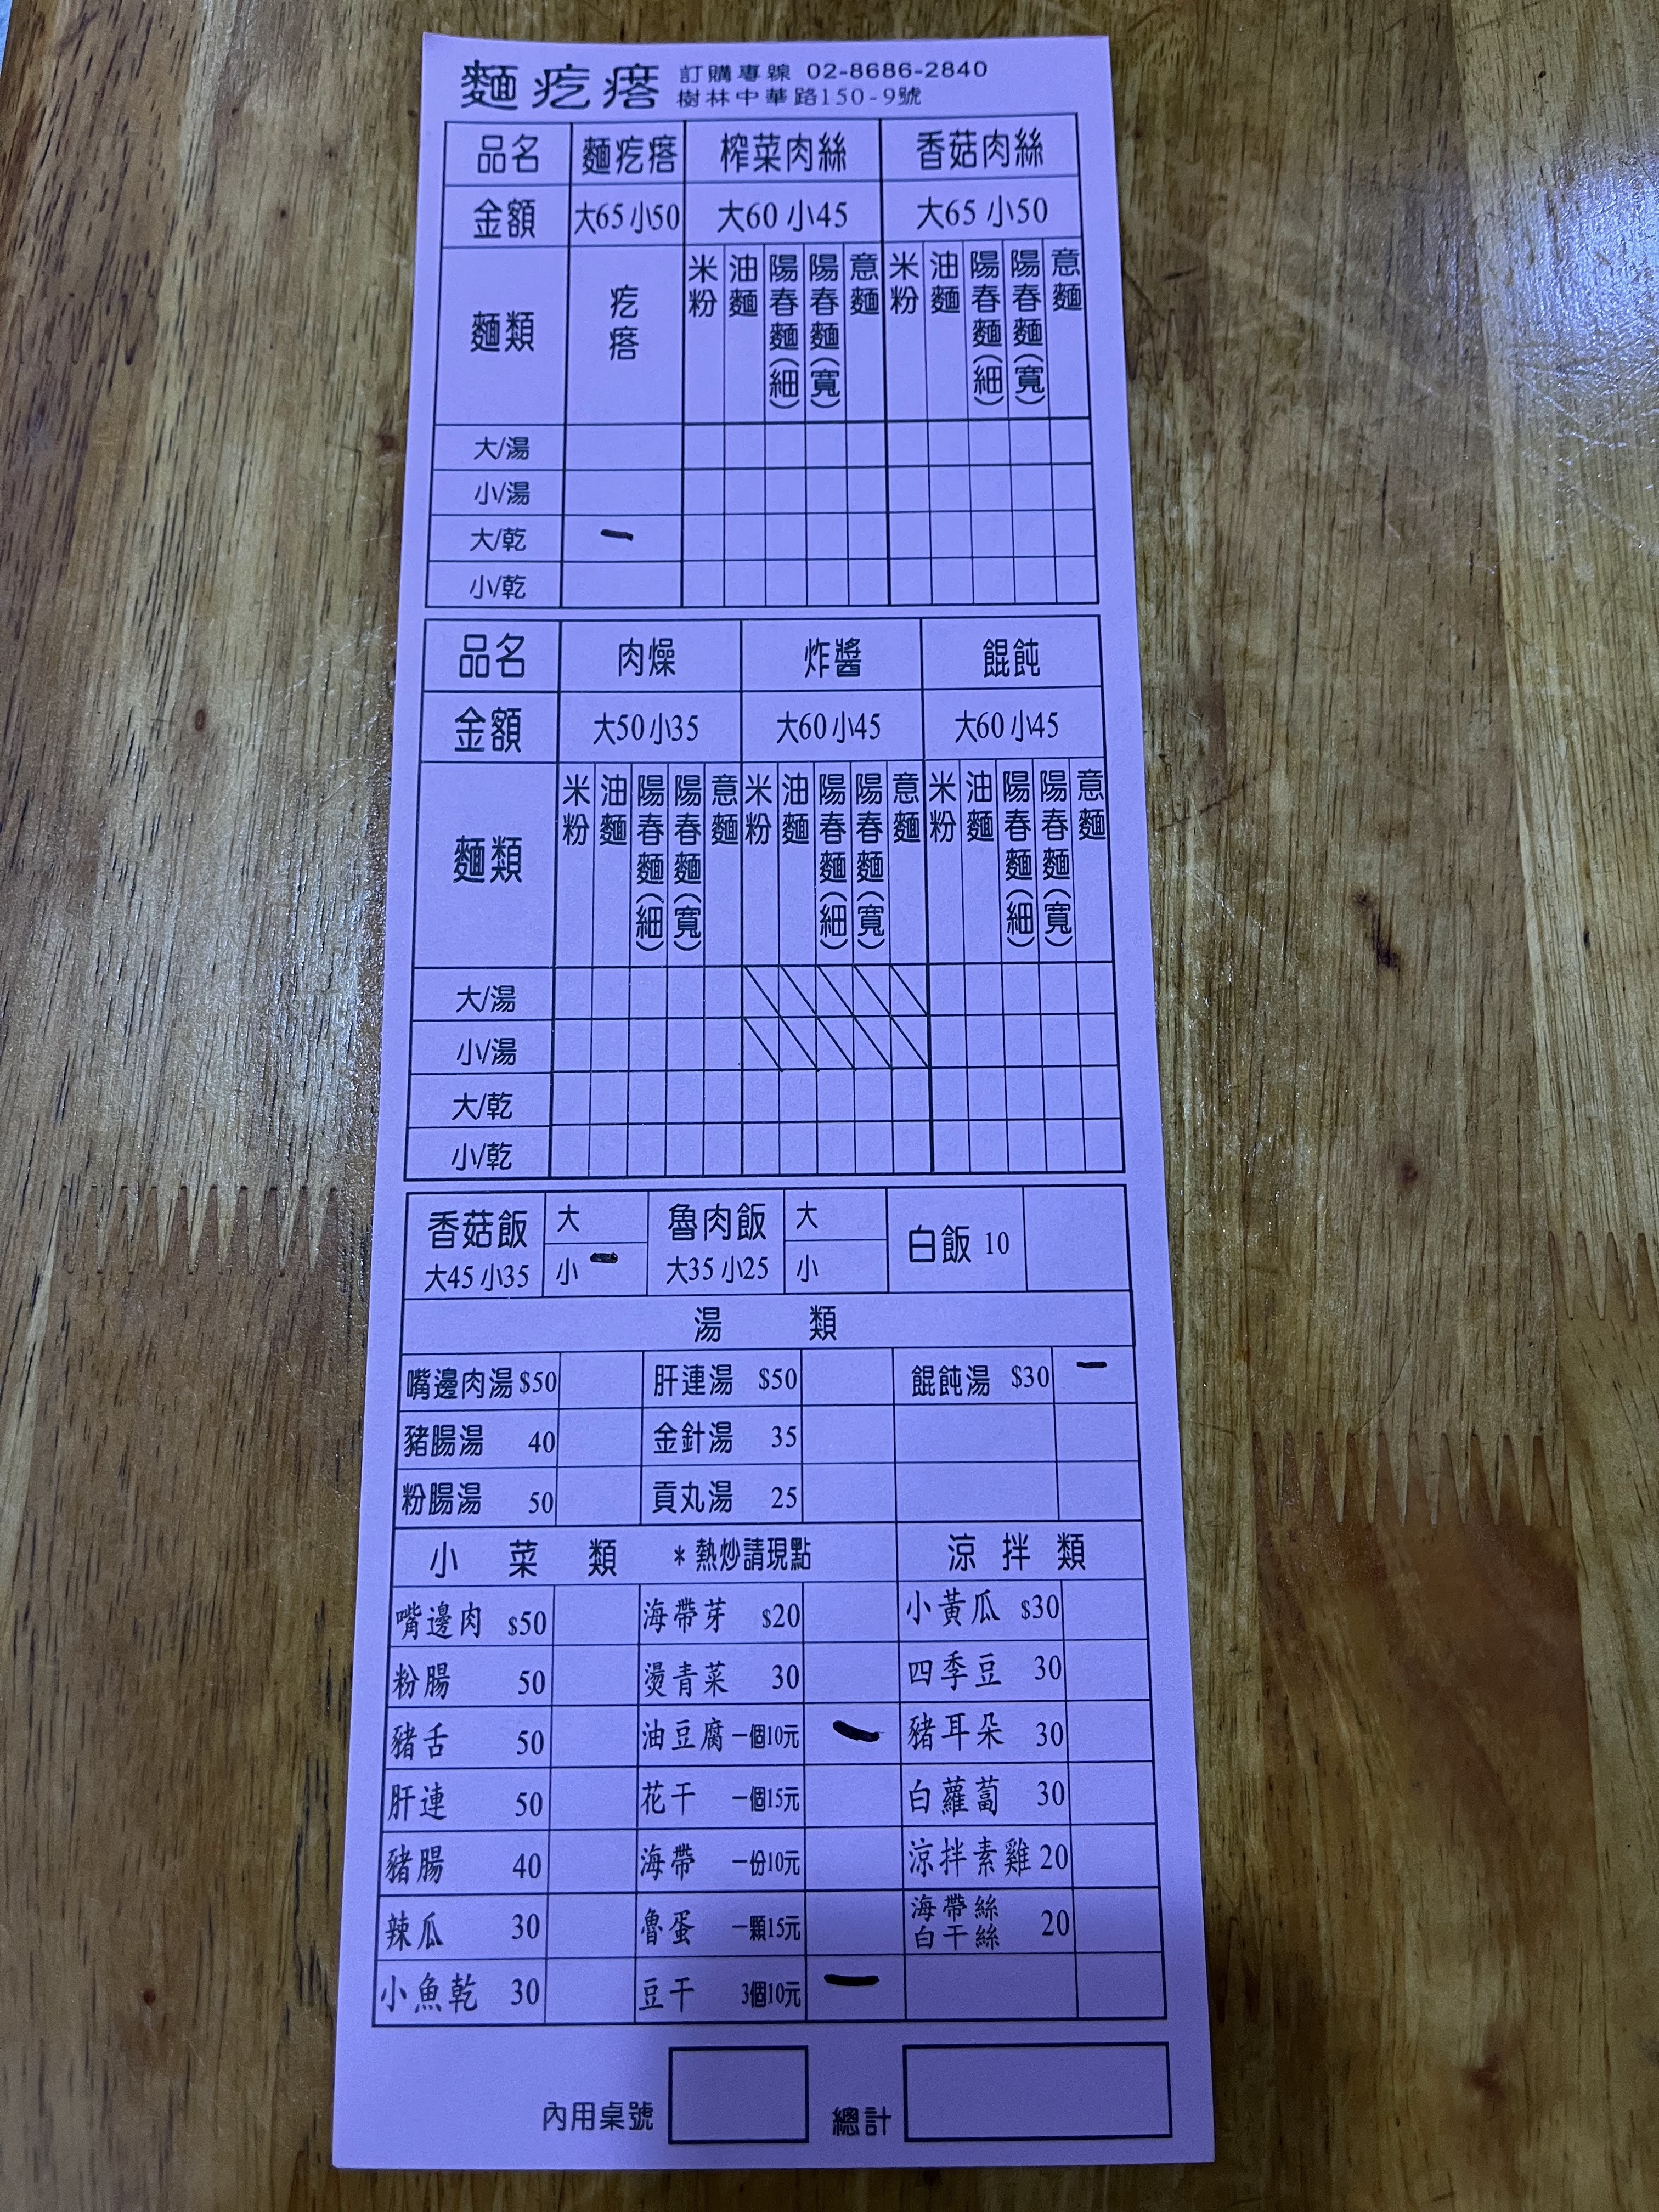 麵疙瘩 訂購專線 02-8686-2840
樹林中華路150-9號
品名 麵疙瘩 榨菜肉絲 香菇肉絲
金額 大65 小50 大60 小45 大65 小50
麵類 疙瘩 米粉 油麵 陽春麵(細) 陽春麵(寬) 意麵 米粉 油麵 陽春麵(細) 陽春麵(寬) 意麵
大/湯
小/湯
大/乾 一
小/乾
品名 肉燥 炸醬 餛飩
金額 大50 小35 大60 小45 大60 小45
麵類 米粉 油麵 陽春麵(細) 陽春麵(寬) 意麵 米粉 油麵 陽春麵(細) 陽春麵(寬) 意麵 米粉 油麵 陽春麵(細) 陽春麵(寬) 意麵
大/湯
小/湯
大/乾
小/乾
香菇飯 大 魯肉飯 大 白飯 10
大45 小35 小 一 大35 小25 小
湯 類
嘴邊肉湯 $50 肝連湯 $50 餛飩湯 $30 一
豬腸湯 40 金針湯 35
粉腸湯 50 貢丸湯 25
小 菜 類 *熱炒請現點 涼 拌 類
嘴邊肉 $50 海帶芽 $20 小黃瓜 $30
粉腸 50 燙青菜 30 四季豆 30
豬舌 50 油豆腐 一個10元 一 豬耳朵 30
肝連 50 花干 一個15元 白蘿蔔 30
豬腸 40 海帶 一份10元 涼拌素雞 20
辣瓜 30 魯蛋 一顆15元 海帶絲 白干絲 20
小魚乾 30 豆干 3個10元 一
內用桌號 總計